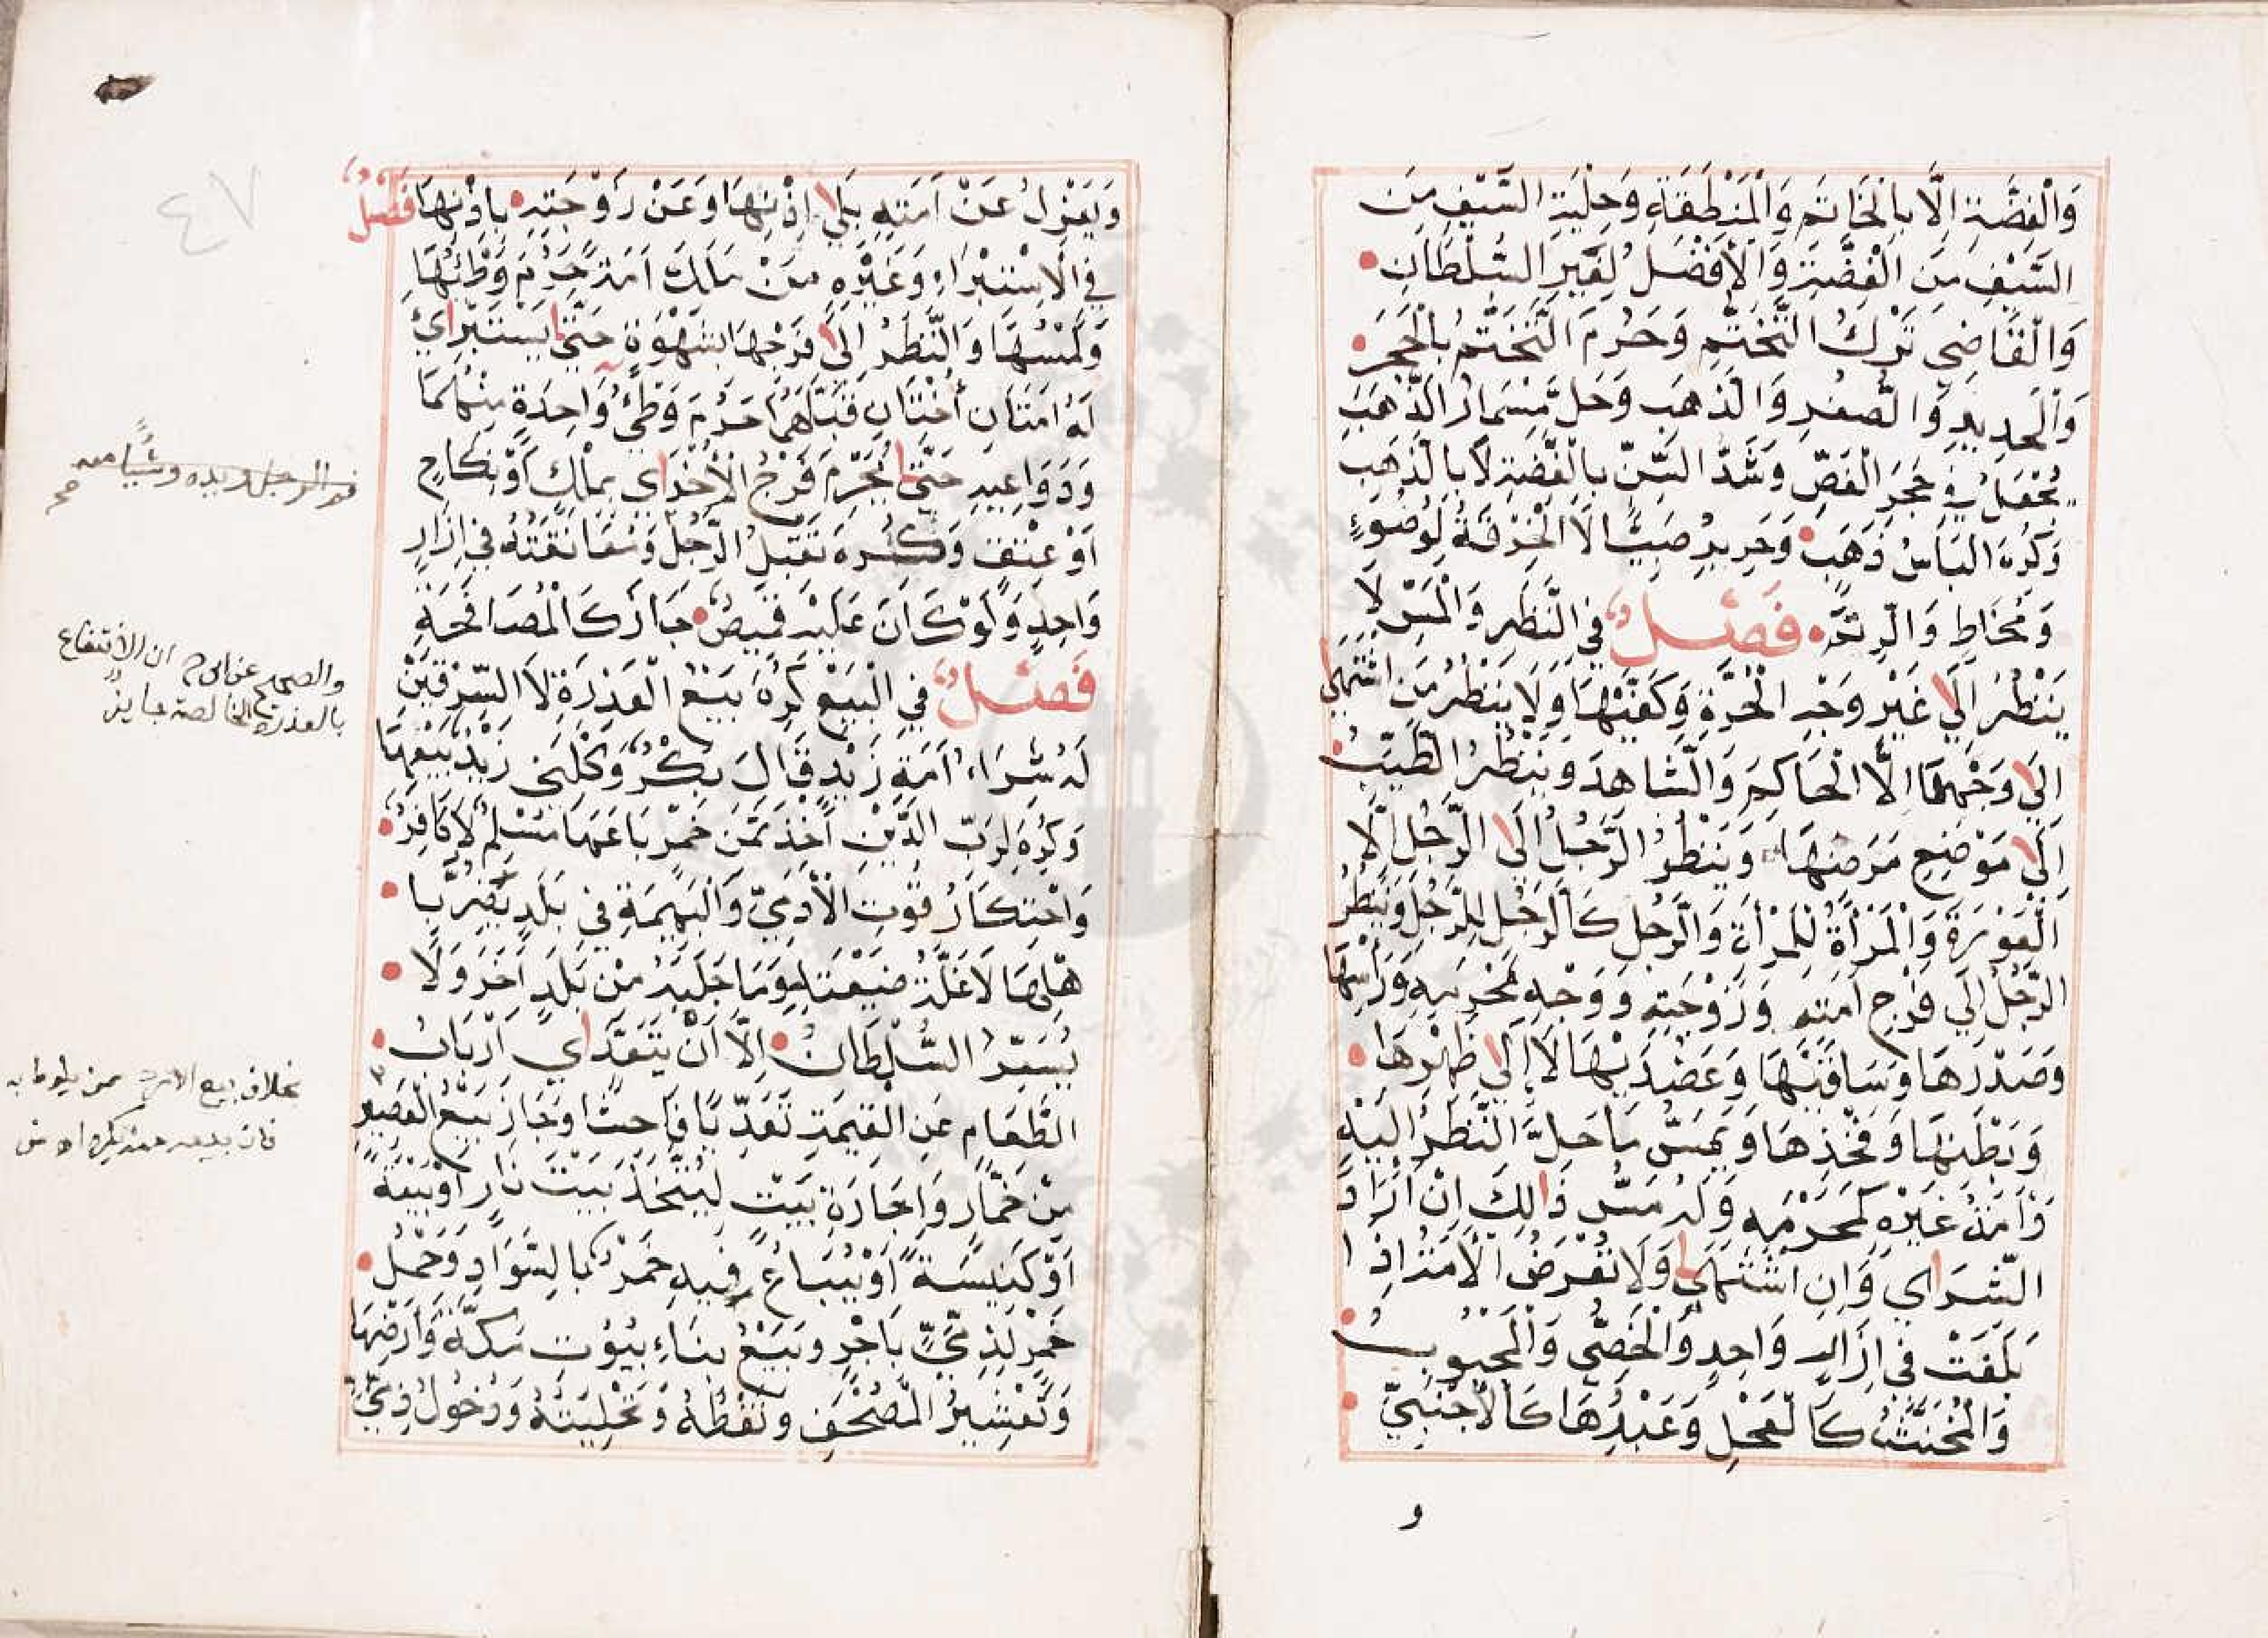 وَالْفِضَّةِ اِلَّا بِالْخَاتَمِ وَالْمِنْطَقَةِ وَحِلْيَةِ السَّيْفِ مِنَ
السَّيْفِ مِنَ الْفِضَّةِ وَالْاَفْضَلُ لِغَيْرِ السُّلْطَانِ
وَالْقَاضِي تَرْكُ التَّخَتُّمِ وَحَرُمَ التَّخَتُّمُ بِالْحَجَرِ
وَالْحَدِيدِ وَالصُّفْرِ وَالذَّهَبِ وَحَلَّ مِسْمَارُ الذَّهَبِ
يُجْعَلُ فِي حَجَرِ الْفَصِّ وَشَدُّ السِّنِّ بِالْفِضَّةِ لَا بِالذَّهَبِ
وَكُرِهَ الْبَاسُ ذَهَبٍ وَحَرِيرٍ صَبِيًّا لَا الْخِرْقَةُ لِوُضُوْءٍ
وَمُخَاطٍ وَالرَّتَمُ فَصْلٌ فِي النَّظَرِ وَالْمَسِّ لَا
يَنْظُرُ اِلَى غَيْرِ وَجْهِ الْحُرَّةِ وَكَفَّيْهَا وَلَا يَنْظُرُ مَنِ اشْتَهَى
اِلَى وَجْهِهَا اِلَّا الْحَاكِمَ وَالشَّاهِدَ وَيَنْظُرُ الطَّبِيبُ
اِلَى مَوْضِعِ مَرَضِهَا وَيَنْظُرُ الرَّجُلُ اِلَى الرَّجُلِ اِلَّا
الْعَوْرَةَ وَالْمَرْأَةُ لِلْمَرْأَةِ وَالرَّجُلِ كَالرَّجُلِ لِلرَّجُلِ وَيَنْظُرُ
الرَّجُلُ اِلَى فَرْجِ اَمَتِهِ وَزَوْجَتِهِ وَوَجْهِ مَحْرَمِهِ وَرَأْسِهَا
وَصَدْرِهَا وَسَاقَيْهَا وَعَضُدَيْهَا لَا اِلَى ظَهْرِهَا
وَبَطْنِهَا وَفَخْذِهَا وَيَمَسُّ مَا حَلَّ النَّظَرُ اِلَيْهِ
وَاَمَةُ غَيْرِهِ كَمَحْرَمِهِ وَلَهُ مَسُّ ذَالِكَ اِنْ اَرَادَ
الشِّرَاي وَاِنِ اشْتَهَى وَلَا تُعْرَضُ الْاَمَةُ اِذَا
بَلَغَتْ فِي اِزَارٍ وَاحِدٍ وَالْخَصِيُّ وَالْمَجْبُوبُ
وَالْمُخَنَّثُ كَالْفَحْلِ وَعَبْدُهَا كَالْاَجْنَبِيِّ
و
٤٧
وَيَعْزِلُ عَنْ اَمَتِهِ بَلَا اِذْنِهَا وَعَنْ زَوْجَتِهِ بِاِذْنِهَا فَصْلٌ
فِي الْاِسْتِبْرَاءِ وَغَيْرِهِ مَنْ مَلَكَ اَمَةً حَرُمَ وَطْئُهَا
وَلَمْسُهَا وَالنَّظَرُ اِلَى فَرْجِهَا بِشَهْوَةٍ حَتَّى يَسْتَبْرِايَ
لَهُ اَمَتَانِ أُخْتَانِ قَبَّلَهُمَا حَرُمَ وَطْئُ وَاحِدَةٍ مِنْهُمَا
وَدَوَاعِيهِ حَتَّى يُحَرِّمَ فَرْجَ الْاُخْرَاي بِمِلْكٍ اَوْ نِكَاحٍ
اَوْ عِتْقٍ وَكُرِهَ تَقْبِيلُ الرَّجُلِ وَمُعَانَقَتُهُ فِي اِزَارٍ
وَاحِدٍ وَلَوْ كَانَ عَلَيْهِ قَمِيصٌ جَازَ كَالْمُصَافَحَةِ
فَصْلٌ فِي الْبَيْعِ كُرِهَ بَيْعُ الْعَذِرَةِ لَا السِّرْقِيْنِ
لَهُ شِرَاءُ اَمَةِ زَيْدٍ قَالَ بَكْرٌ وَكَّلَنِي زَيْدٌ بِبَيْعِهَا
وَكُرِهَ لِرَبِّ الدَّيْنِ اَخْذُ ثَمَنِ خَمْرٍ بَاعَهَا مُسْلِمٌ لَا كَافِرٌ
وَاحْتِكَارُ قُوْتِ الْاَدَمِيِّ وَالْبَهِيمَةِ فِي بَلَدٍ يَضُرُّ بِا
هْلِهَا لَا غَلَّةُ ضَيْعَتِهِ وَمَا جَلَبَهُ مِنْ بَلَدٍ اَخَرَ وَلَا
يُسَعِّرُ السُّلْطَانُ اِلَّا اَنْ يَتَعَدَّاي اَرْبَابُ
الطَّعَامِ عَنِ الْقِيمَةِ تَعَدِّيًا فَاحِشًا وَجَازَ بَيْعُ الْعَصِيرِ
مِنْ خَمَّارٍ وَاِجَارَةِ بَيْتٍ لِيُتَّخَذَ بَيْتَ نَارٍ اَوْ بِيْعَةً
اَوْ كَنِيسَةً اَوْ يُبَاعُ فِيهِ خَمْرٌ بِالسَّوَادِ وَحَمْلُ
خَمْرٍ لِذِمِّيٍّ بِاَجْرٍ وَبَيْعُ بِنَاءِ بُيُوْتِ مَكَّةَ وَاَرْضِهَا
وَتَعْشِيرُ الْمُصْحَفِ وَنَقْطُهُ وَتَحْلِيَتُهُ وَدُخُولُ ذِمِّيٍّ
الرجل ويده وشيأ منه
والصحيح عن ابي ح ان الانتفاع
بالعذرة الخالصة جايز
بخلاف بيع الامرد ممن يلوط به